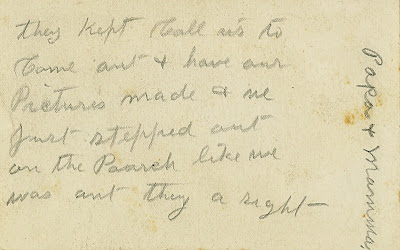 they kept Call us to
Come out & have our
Pictures made & we
Just stepped out
on the Poarch like we
was ant they a sight
Papa & Mamma